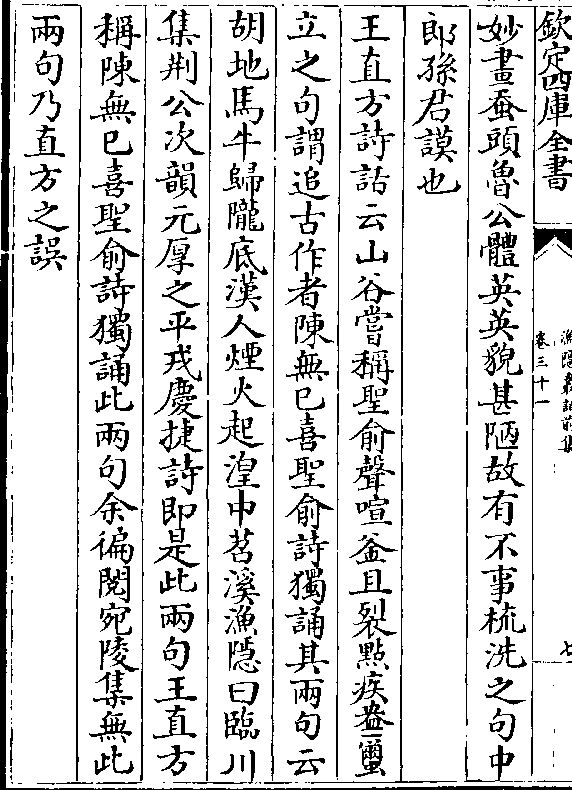 欽定四庫全書
漁隱叢話前集
卷三十一
七
妙畫蚕頭魯公體英英貌甚陋故有不事梳洗之句中
郎孫君謨也
王直方詩話云山谷嘗稱聖俞聲喧釜且裂點疾盎蠒
立之句謂追古作者陳無巳喜聖俞詩獨誦其兩句云
胡地馬牛歸隴底漢人煙火起湟中苕溪漁隱曰臨川
集荆公次韻元厚之平戎慶捷詩即是此兩句王直方
稱陳無巳喜聖俞詩獨誦此兩句余徧閱宛陵集無此
兩句乃直方之誤